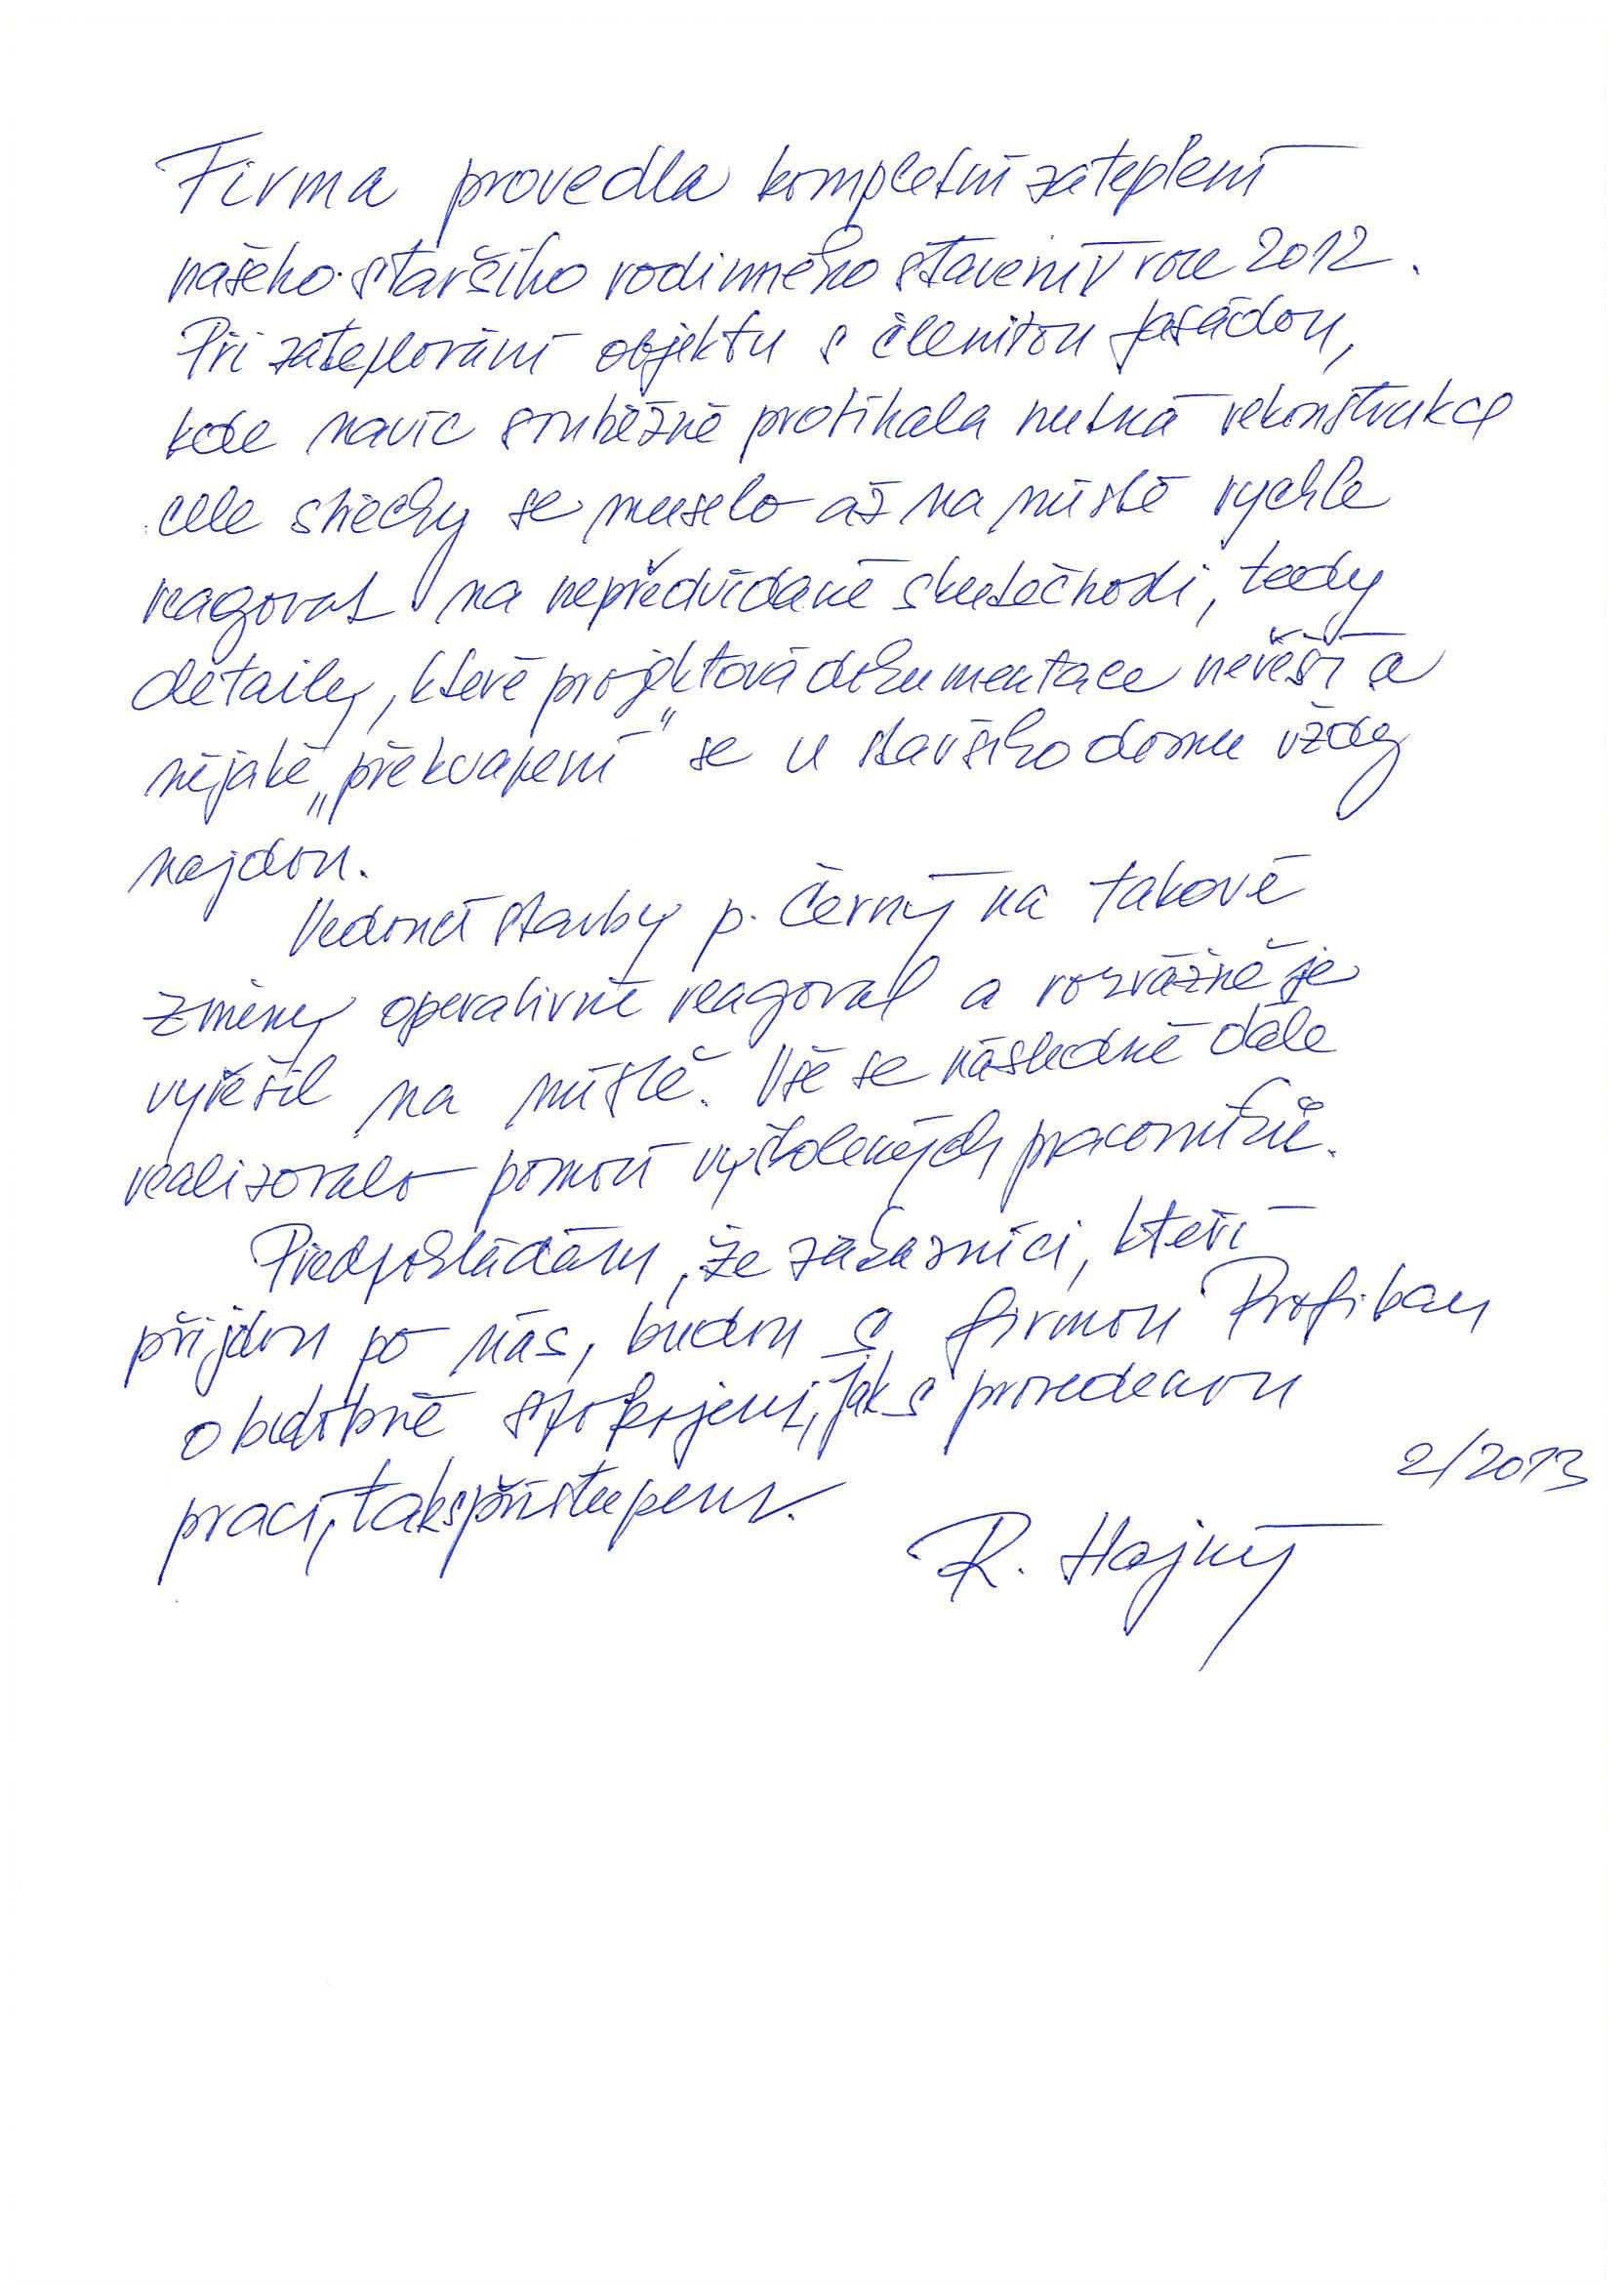 Firma provedla kompletní zateplení
našeho staršího rodinného stavení v roce 2012.
Při zateplování objektu s členitou fasádou,
kde navíc souběžně probíhala nutná rekonstrukce
celé střechy se muselo až na místě rychle
reagovat na nepředvídané skutečnosti, tedy
detaily, které projektová dokumentace neřeší a
nějaké „překvapení" se u staršího domu vždy
najdou.
Vedoucí stavby p. Černý na takové
změny operativně reagoval a rozvážně je
vyřešil na místě. Vše se následně dále
realizovalo pomocí vyškolených pracovníků.
Předpokládám, že zákazníci, kteří
přijdou po nás, budou s firmou Profibau
obdobně spokojeni, jak s provedenou
prací, tak s přístupem.
2/2013
R. Hajný